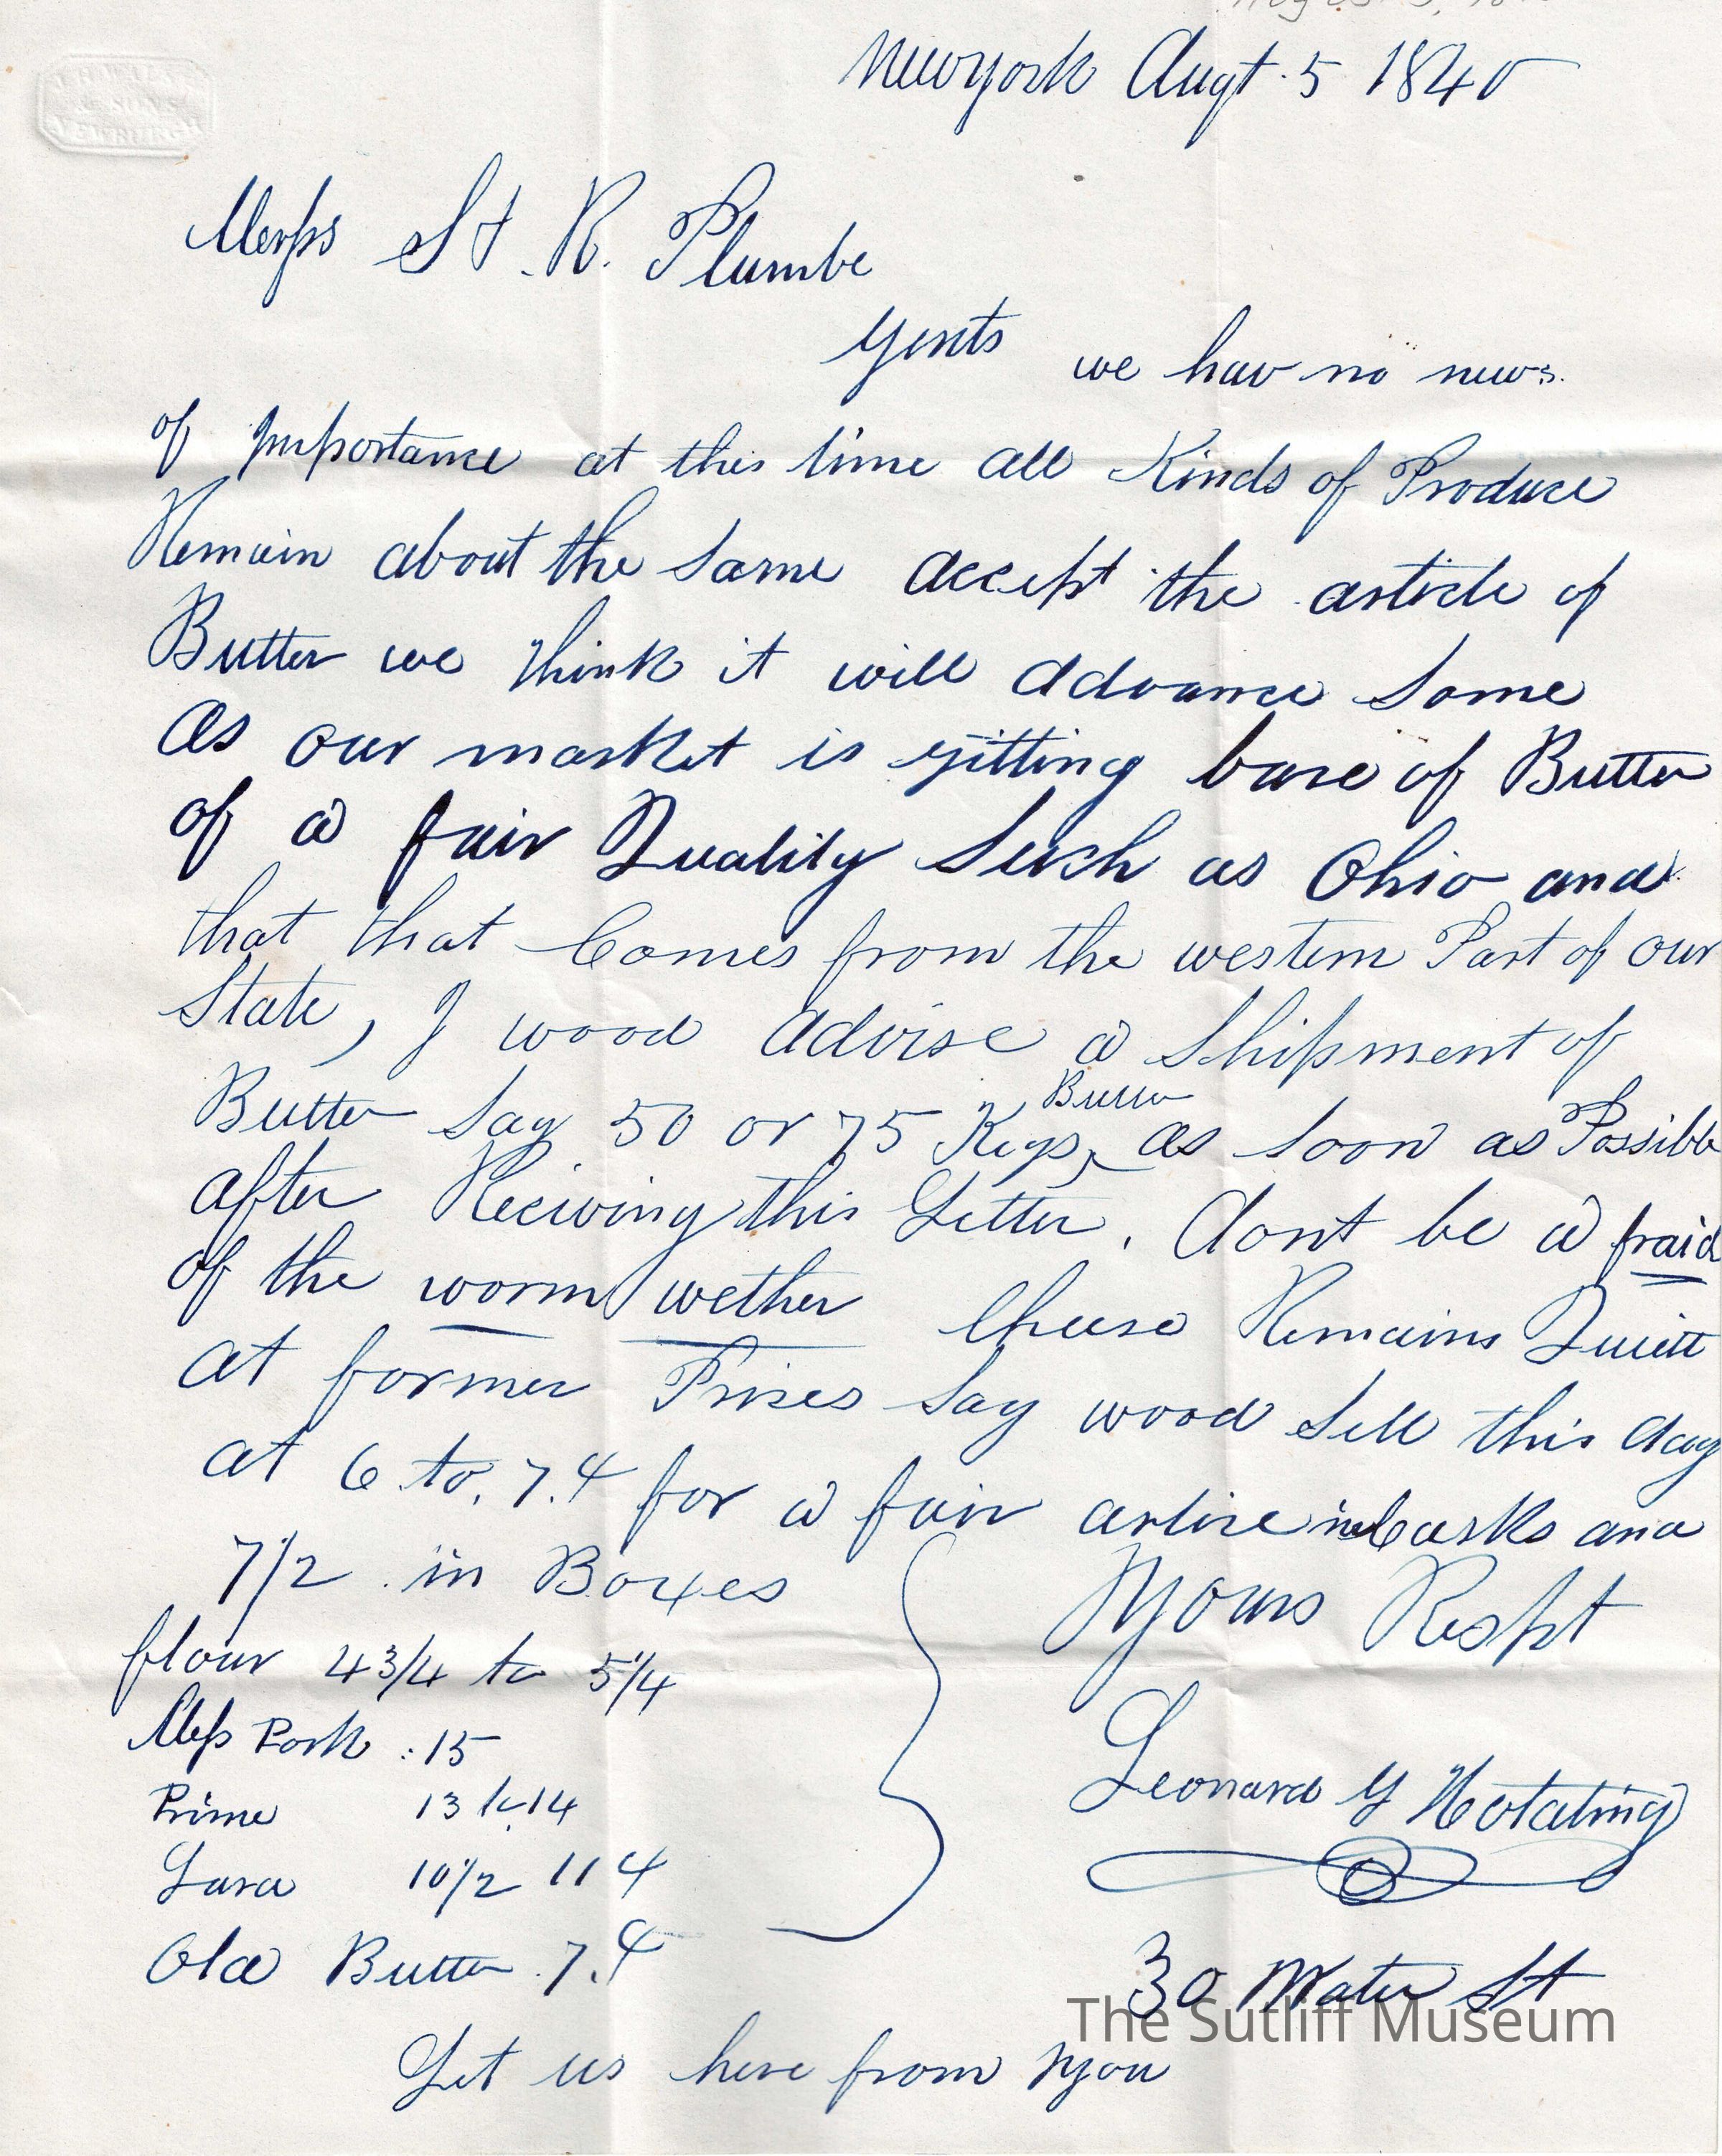 Newyork Augt. 5 1840
& SONS
NEWBURGH
Messs St. R. Plumbe
Gents we hav no news
of Importance at this time all Kinds of Produce
Remain about the same accept the article of
Butter we think it will advance some
as our market is gitting bare of Butter
of a fair Quality such as Ohio and
that that Comes from the western Part of our
State, I wood advise a Shipment of
Butter say 50 or 75 Kegs Butter as soon as Possible
after Reciving this Letter. dont be a fraid
of the worm wether Cheese Remains Quiett
at former Prises say wood sell this day
at 6 to. 7.4 for a fair artice in Casks and
7 1/2 in Boxes
flour 4 3/4 to 5 1/4
Mess Pork 15
Prime 13 to 14
Lard 10 1/2 11 4
Old Butter 7.4
Yours Respt
Leonard G
30 Water St
Let us here from you
The Sutliff Museum